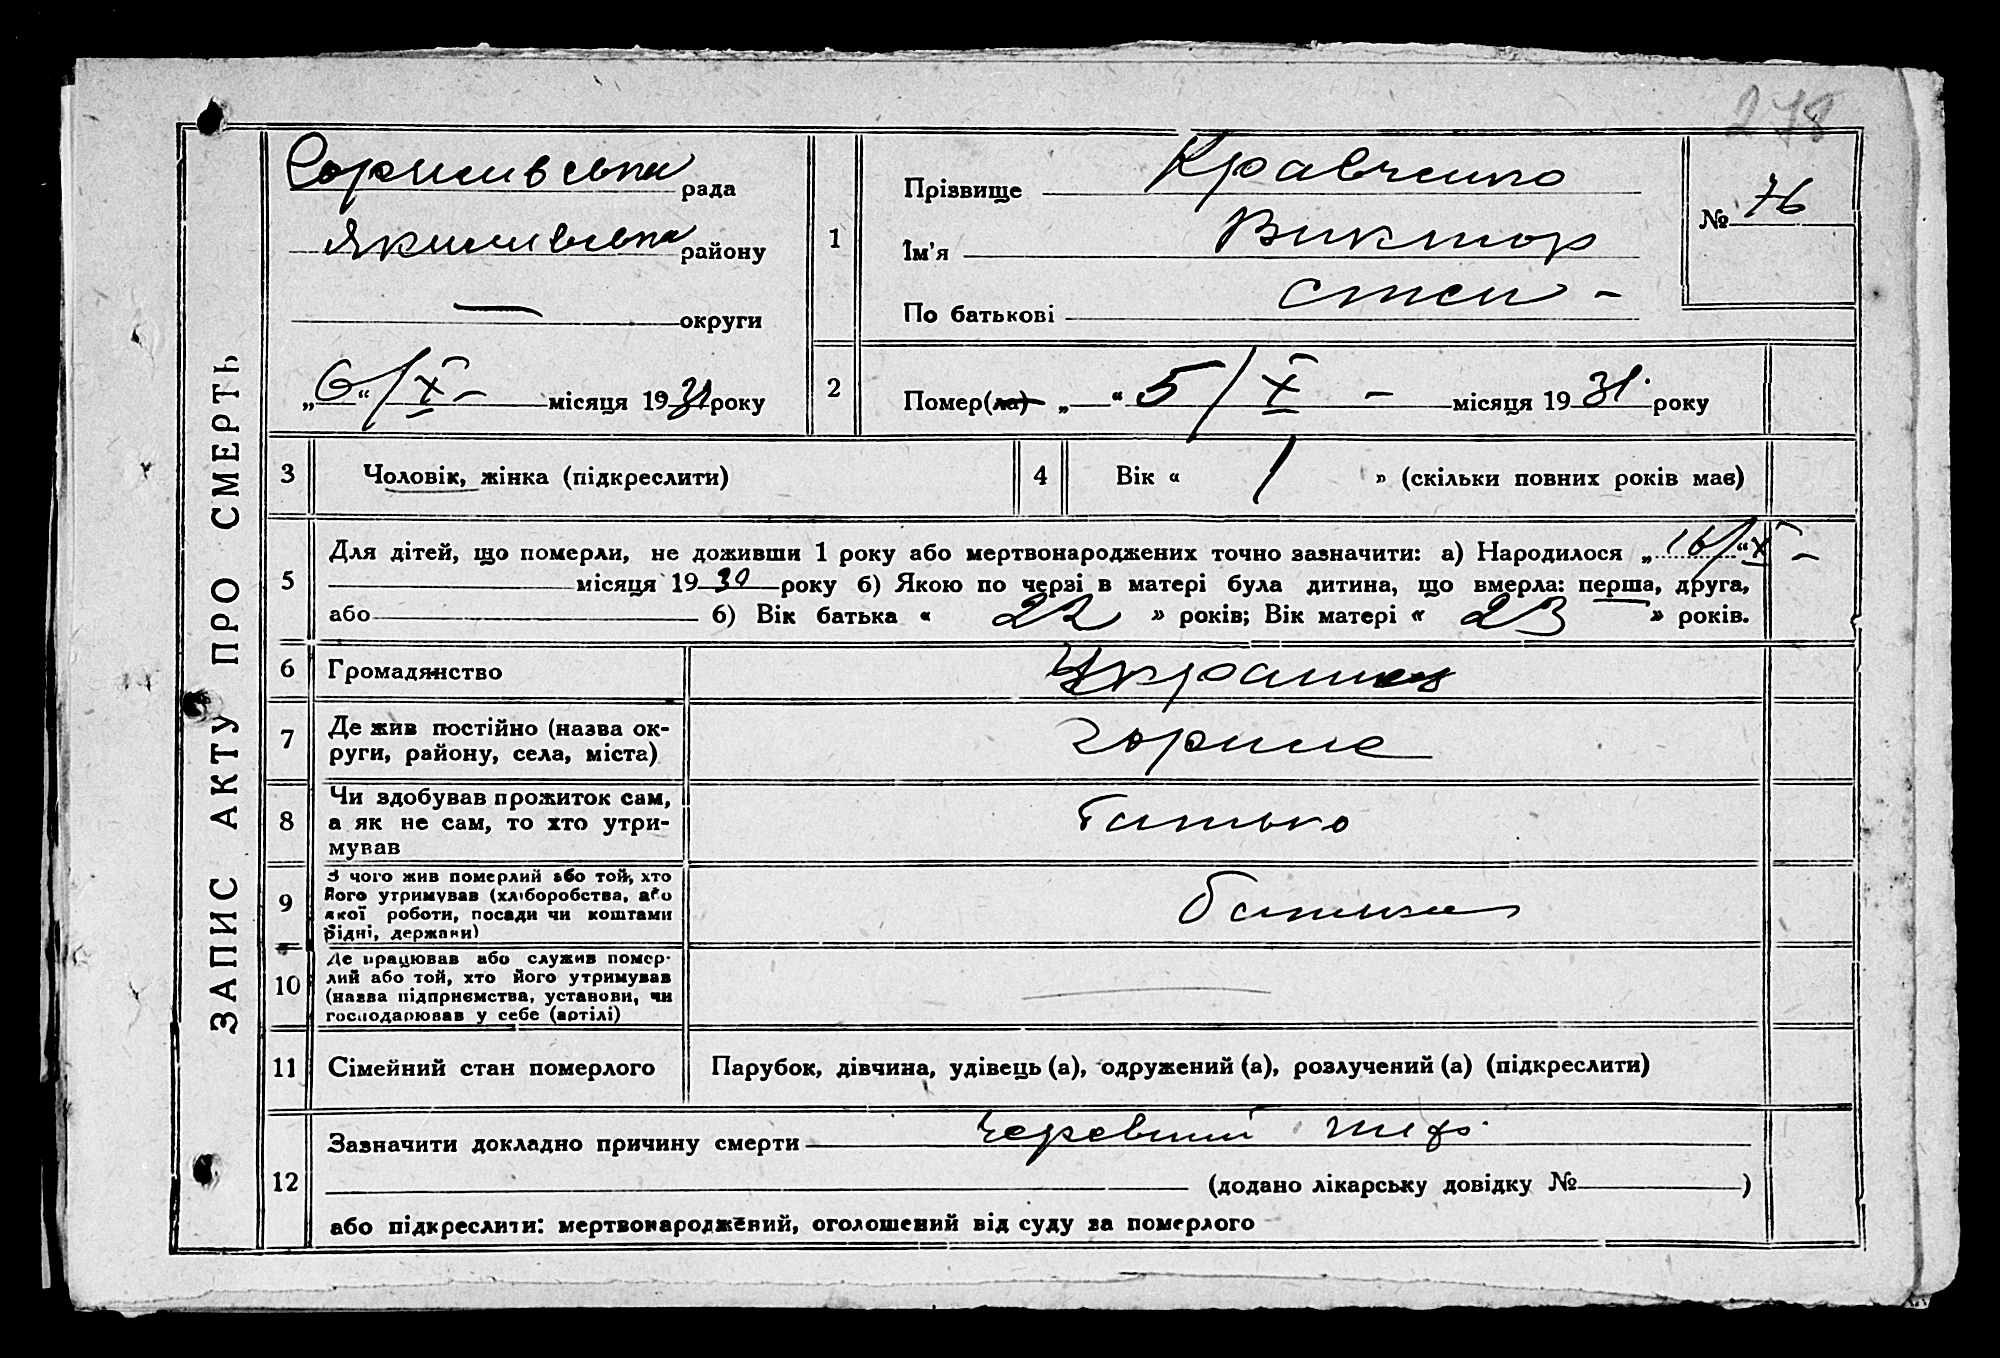 278
ЗАПИС АКТУ ПРО СМЕРТЬ
рада
району
— округи
„6“/X – місяця 1931 року
1
Прізвище Кравченко
Ім'я Виктор
По батькові Степ –
№ 76
2
Помер(ла) „ “ 5/X – місяця 1931 року
3
Чоловік, жінка (підкреслити)
4
Вік « 1 » (скільки повних років має)
5
Для дітей, що померли, не доживши 1 року або мертвонароджених точно зазначити: а) Народилося „16/“X –
місяця 1930 року б) Якою по черзі в матері була дитина, що вмерла: перша, друга,
або б) Вік батька « 22 » років; Вік матері « 23 » років.
6
Громадянство
Украинец
7
Де жив постійно (назва ок-
руги, району, села, міста)
8
Чи здобував прожиток сам,
а як не сам, то хто утри-
мував
батько
9
З чого жив померлий або той, хто
його утримував (хліборобства, або
якої роботи, посади чи коштами
рідні, держави)
10
Де працював або служив помер-
лий або той, хто його утримував
(назва підприємства, установи, чи
господарював у себе (артілі)
—
11
Сімейний стан померлого
Парубок, дівчина, удівець (а), одружений (а), розлучений (а) (підкреслити)
12
Зазначити докладно причину смерти Черевний тиф.
(додано лікарську довідку № )
або підкреслити: мертвонароджений, оголошений від суду за померлого